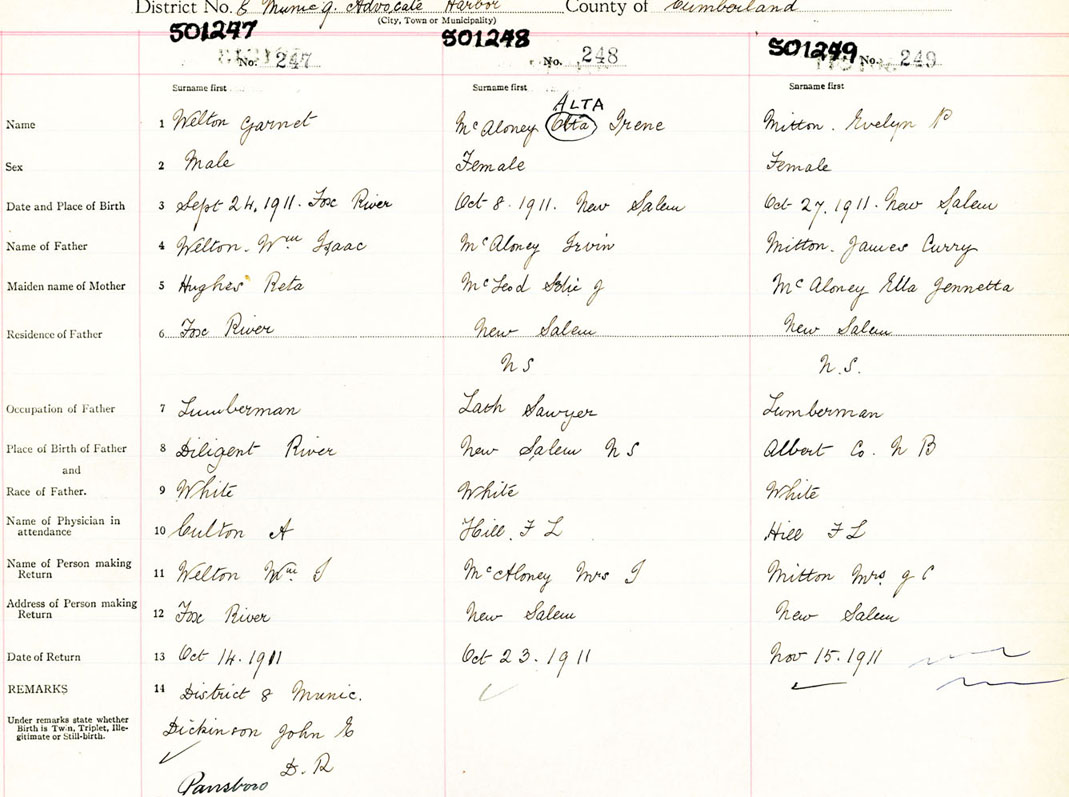 District No. 8 Munic g. Advocate Harbor County of Cumberland
(City, Town or Municipality)
S01247 S01248 S01249
No. 247 No. 248 No. 249
Surname first Surname first Surname first
ALTA
Name 1 Welton Garnet McAloney Olta Irene Mitton. Evelyn P
Sex 2 Male Female Female
Date and Place of Birth 3 Sept 24, 1911. Fox River Oct 8. 1911. New Salem Oct 27, 1911. New Salem
Name of Father 4 Welton. Wm Isaac McAloney Irvin Mitton. James Curry
Maiden name of Mother 5 Hughes Reta McLeod J McAloney Ella Jennetta
Residence of Father 6 Fox River New Salem New Salem
N S N.S.
Occupation of Father 7 Lumberman Lath Sawyer Lumberman
Place of Birth of Father 8 Diligent River New Salem N S Albert Co. N B
and
Race of Father. 9 White White White
Name of Physician in
attendance 10 Culton A Hill. F L Hill F L
Name of Person making
Return 11 Welton Wm I McAloney Mrs I Mitton Mrs J C
Address of Person making
Return 12 Fox River New Salem New Salem
Date of Return 13 Oct 14. 1911 Oct 23. 1911 Nov 15. 1911
REMARKS 14 District 8 Munic.
Under remarks state whether
Birth is Twin, Triplet, Ille-
gitimate or Still-birth.
Dickinson John E
D. R
Parrsboro